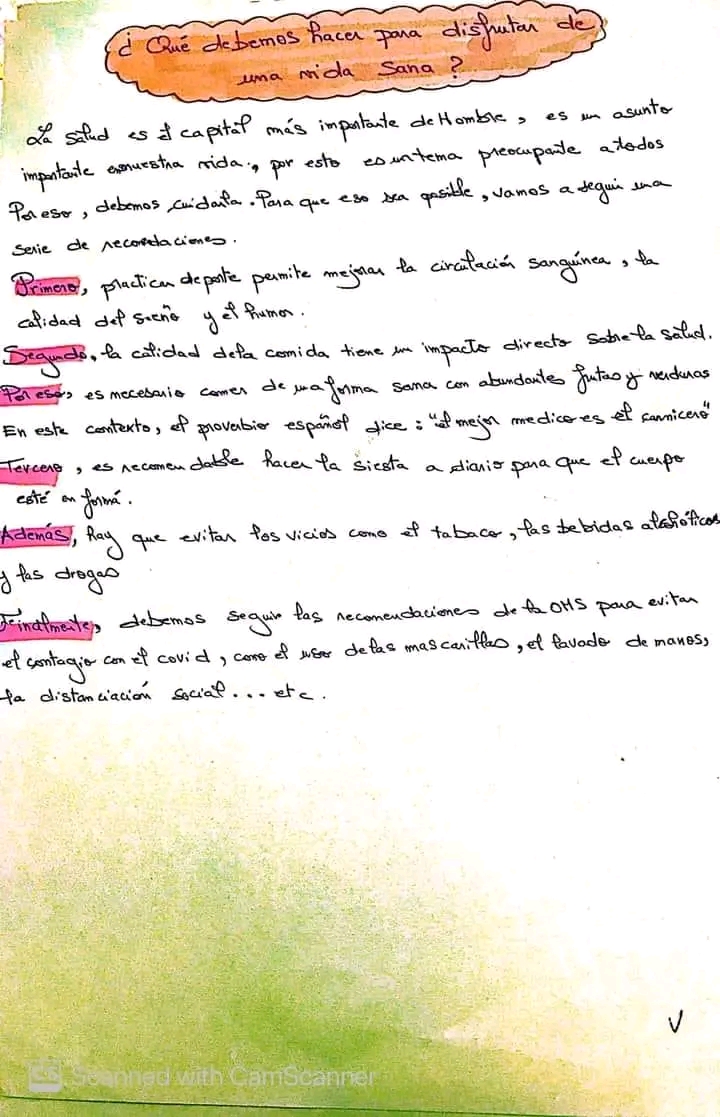 ¿ Qué debemos hacer para disfrutar de
una vida Sana ?
La salud es el capital más importante de Hombre, es un asunto
importante en nuestra vida., por esto es un tema preocupante a todos
Por eso, debemos cuidarla. Para que eso sea posible, vamos a seguir una
serie de recordaciones.
Primero, practicar deporte permite mejorar la circulación sanguínea, la
calidad del sueño y el humor.
Segundo, la calidad dela comida tiene un impacto directo sobre la salud.
Por eso, es necesario comer de una forma sana con abundantes frutas y verduras
En este contexto, el proverbio español dice : "el mejor medico es el carnicero"
Tercero, es recomendable hacer la siesta a diario para que el cuerpo
esté en formá.
Además, Hay que evitar los vicios como el tabaco, las bebidas alcohólicas
y las drogas
Finalmente, debemos seguir las recomendaciones de la OMS para evitar
el contagio con el covid, como el uso de las mascarillas, el lavado de manos,
la distanciación social... etc.
V
CS Scanned with CamScanner